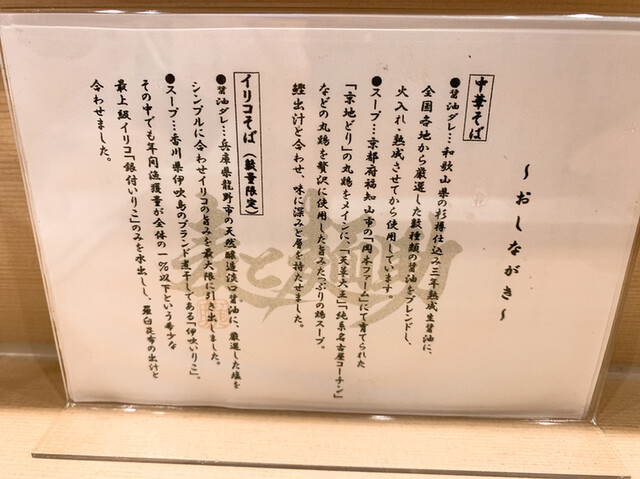 ～おしながき～
中華そば
●醤油ダレ…和歌山県の杉樽仕込み三年熟成生醤油に、
全国各地から厳選した数種類の醤油をブレンドし、
火入れ・熟成させてから使用しています。
●スープ…京都府福知山市の「岡本ファーム」にて育てられた
「京地どり」の丸鶏をメインに、「天草大王」「純系名古屋コーチン」
などの丸鶏を贅沢に使用した旨みたっぷりの鶏スープ。
鰹出汁と合わせ、味に深みと層を持たせました。
イリコそば（数量限定）
●醤油ダレ…兵庫県龍野市の天然醸造淡口醤油に、厳選した塩を
シンプルに合わせイリコの旨みを最大限に引き出しました。
●スープ…香川県伊吹島のブランド煮干しである「伊吹いりこ」。
その中でも年間漁獲量が全体の1％以下という希少な
最上級イリコ「銀付いりこ」のみを水出しし、羅臼昆布の出汁と
合わせました。